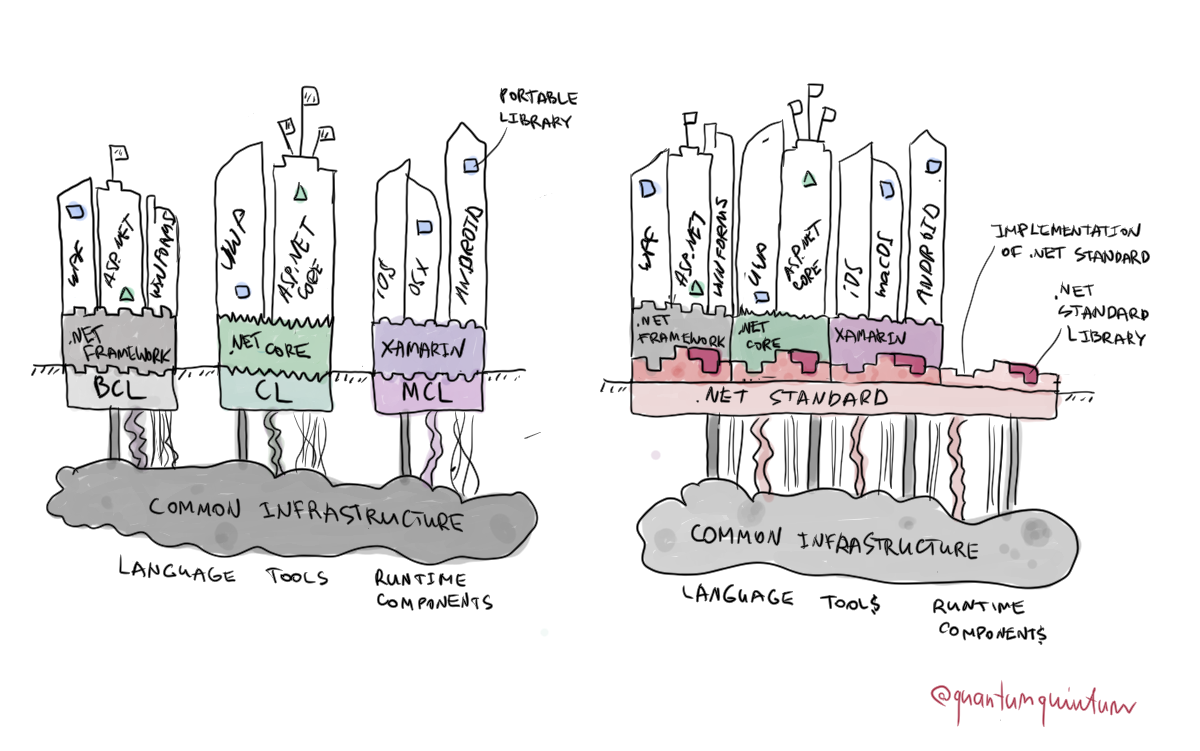 PORTABLE
LIBRARY
WPF
ASP.NET
WINFORMS
UWP
ASP.NET
CORE
iOS
OSX
ANDROID
.NET
FRAMEWORK
.NET CORE
XAMARIN
BCL
CL
MCL
COMMON INFRASTRUCTURE
LANGUAGE TOOLS RUNTIME
COMPONENTS
WPF
ASP.NET
WINFORMS
UWP
ASP.NET
CORE
iOS
macOS
ANDROID
IMPLEMENTATION
OF .NET STANDARD
.NET
STANDARD
LIBRARY
.NET
FRAMEWORK
.NET
CORE
XAMARIN
.NET STANDARD
COMMON INFRASTRUCTURE
LANGUAGE TOOLS RUNTIME
COMPONENTS
@quantumquintum